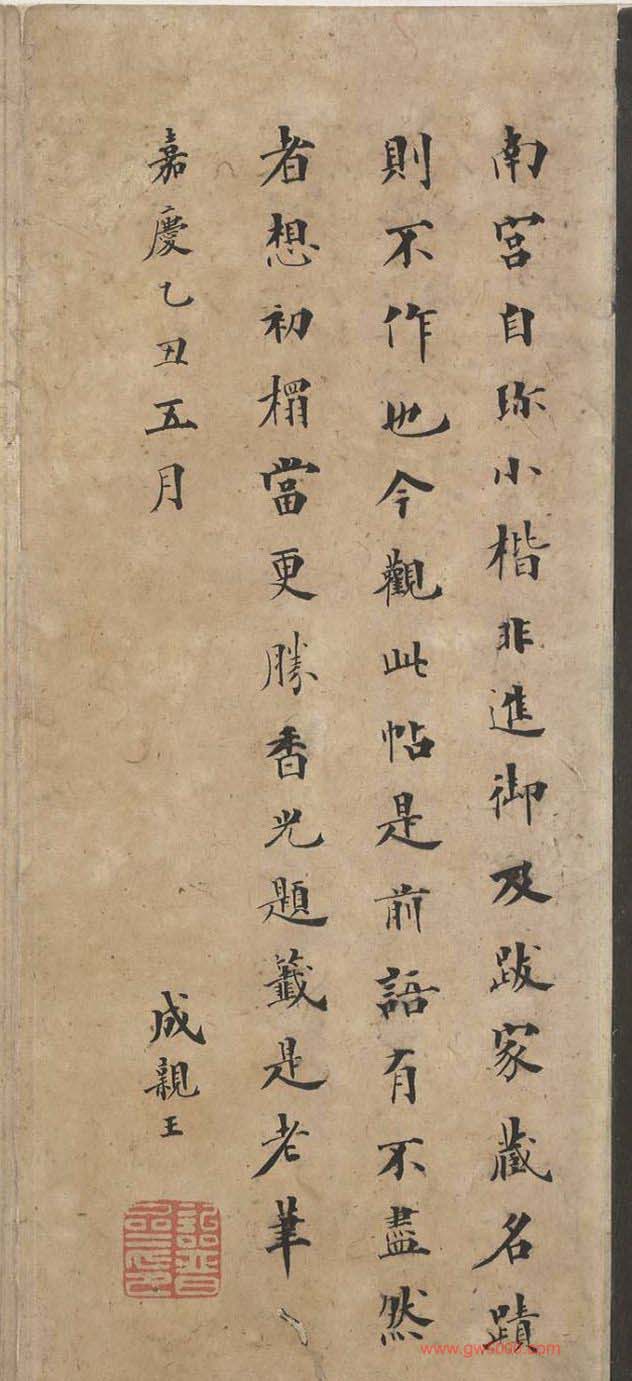 南宫自珎小楷非進御及跋家藏名蹟
則不作也今觀此帖是前語有不盡然
者想初榻當更勝香光題籤是老筆
嘉慶乙丑五月
成親王
詒晉齋印
www.gws000.com